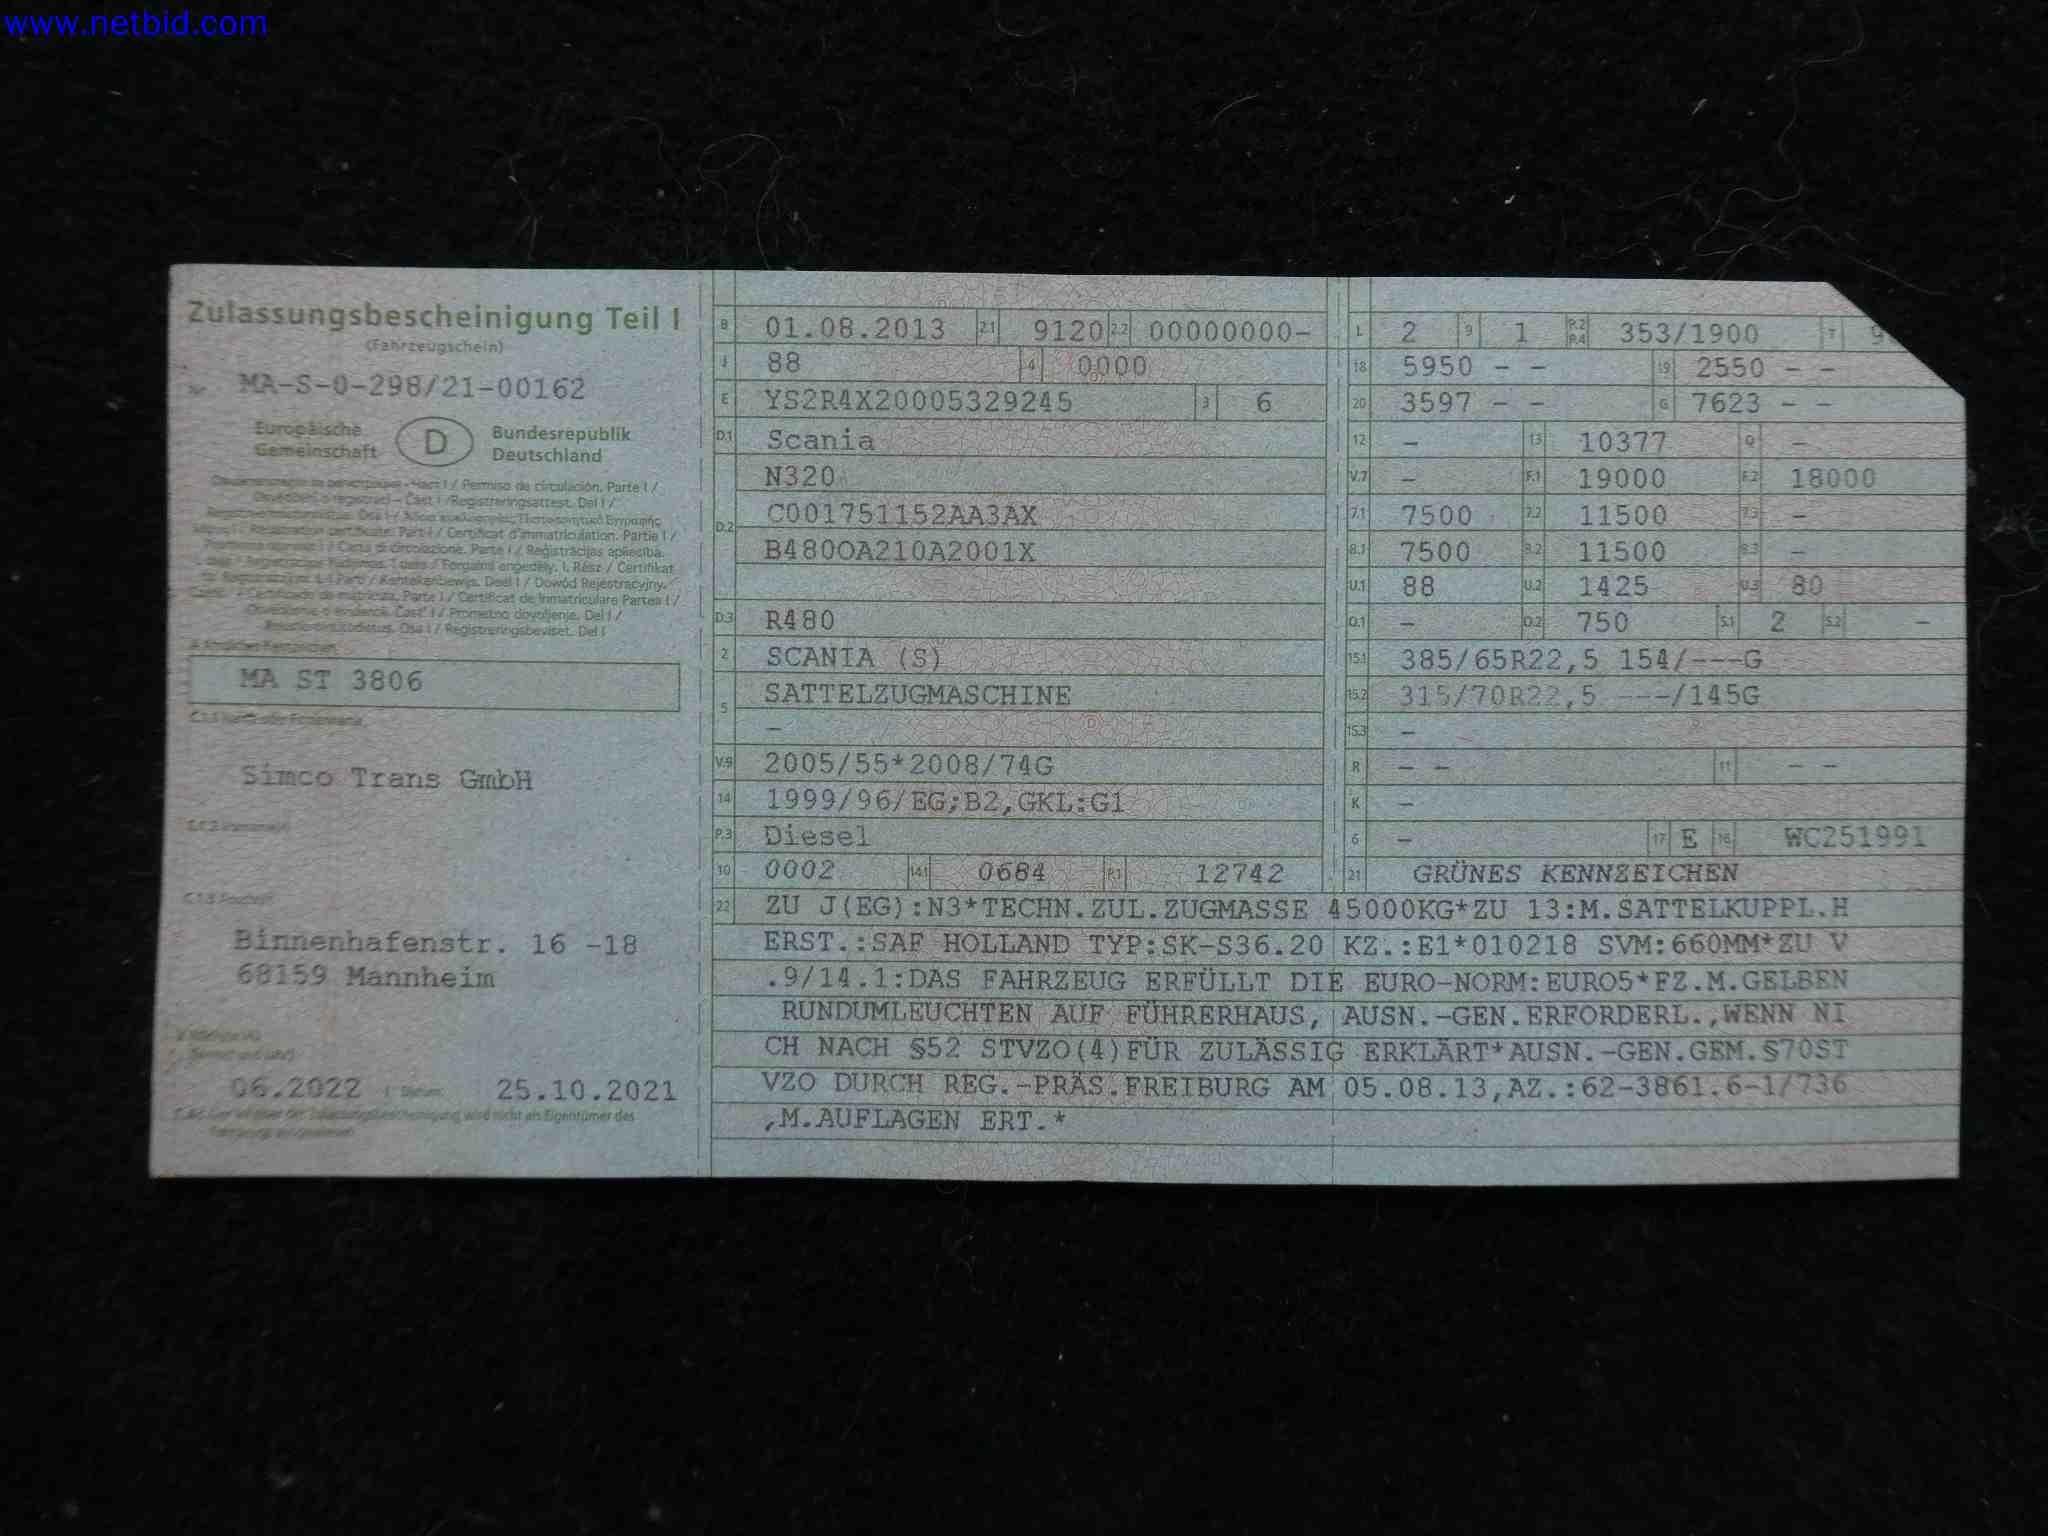 www.netbid.com
Zulassungsbescheinigung Teil I
(Fahrzeugschein)
Nr. MA-S-0-298/21-00162
Europäische Gemeinschaft
D
Bundesrepublik Deutschland
Permiso de circulación. Parte I /
Osvědčení o registraci - Část I / Registreringsattest. Del I /
Part I / Certificat d'immatriculation. Partie I /
Carta di circolazione. Parte I / Reģistrācijas apliecība.
Forgalmi engedély. I. Rész / Ċertifikat
Kentekenbewijs. Deel I / Dowód Rejestracyjny.
Parte I / Certificat de înmatriculare Partea I /
Prometno dovoljenje. Del I /
Osa I / Registreringsbeviset. Del I
MA ST 3806
Simco Trans GmbH
Binnenhafenstr. 16 -18
68159 Mannheim
06.2022 Datum 25.10.2021
B 01.08.2013 2.1 9120 2.2 00000000-
J 88 4 0000
E YS2R4X20005329245 3 6
D.1 Scania
N320
D.2 C001751152AA3AX
B480OA210A2001X
D.3 R480
2 SCANIA (S)
5 SATTELZUGMASCHINE
–
V.9 2005/55*2008/74G
14 1999/96/EG;B2,GKL:G1
P.3 Diesel
10 0002 14.1 0684 P.1 12742
L 2 9 1 P.2 P.4 353/1900 T
18 5950 – – 19 2550 – –
20 3597 – – G 7623 – –
12 – 13 10377 Q –
V.7 – F.1 19000 F.2 18000
7.1 7500 7.2 11500 7.3 –
8.1 7500 8.2 11500 8.3 –
U.1 88 U.2 1425 U.3 80
O.1 – O.2 750 S.1 2 S.2 –
15.1 385/65R22,5 154/---G
15.2 315/70R22,5 ---/145G
15.3 –
R – – 11 – –
K –
6 – 17 E 16 WC251991
21 GRÜNES KENNZEICHEN
22 ZU J(EG):N3*TECHN.ZUL.ZUGMASSE 45000KG*ZU 13:M.SATTELKUPPL.H
ERST.:SAF HOLLAND TYP:SK-S36.20 KZ.:E1*010218 SVM:660MM*ZU V
.9/14.1:DAS FAHRZEUG ERFÜLLT DIE EURO-NORM:EURO5*FZ.M.GELBEN
RUNDUMLEUCHTEN AUF FÜHRERHAUS, AUSN.-GEN.ERFORDERL.,WENN NI
CH NACH §52 STVZO(4)FÜR ZULÄSSIG ERKLÄRT*AUSN.-GEN.GEM.§70ST
VZO DURCH REG.-PRÄS.FREIBURG AM 05.08.13,AZ.:62-3861.6-1/736
,M.AUFLAGEN ERT.*